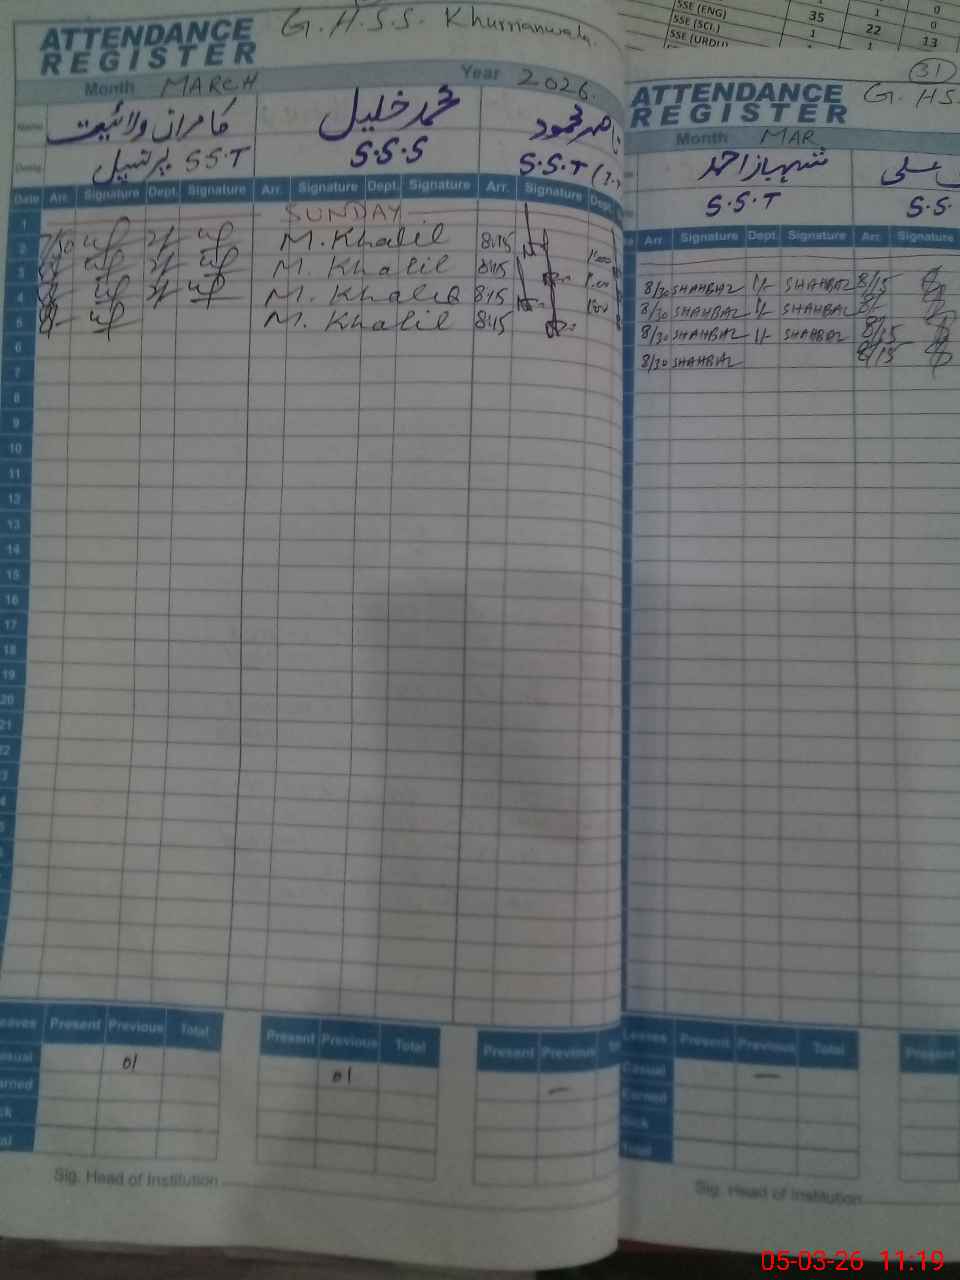 SSE (ENG) 1 0
SSE (SCI.) 35 1 0
SSE (URDU) 1 22 13
ATTENDANCE REGISTER
G.H.S.S. Khurrianwala.
Month MARCH Year 2026.
Name کامران ولائیت محمد خلیل ناصر محمود
پرنسپل S.S.T S.S.S S.S.T
Date Arr. Signature Dept. Signature Arr. Signature Dept. Signature Arr. Signature Dept.
1 SUNDAY
2 M. Khalil 8:15
3 M. Khalil 8:15
4 M. Khalil 8:15
5 M. Khalil 8:15
6
7
8
9
10
11
12
13
14
15
16
17
18
19
20
21
22
Leaves Present Previous Total Present Previous Total Present Previous
Casual 01 01 —
Earned
Sick
Total
Sig. Head of Institution
31
ATTENDANCE REGISTER
G. HS
Month MAR
شہباز احمد
S.S.T S.S.
Arr. Signature Dept. Signature Arr. Signature
8/30 SHAHBAZ 1/- SHAHBAZ 8/15
8/30 SHAHBAZ 1/- SHAHBAZ
8/30 SHAHBAZ 1/- SHAHBAZ 8/15
8/30 SHAHBAZ 8/15
Leaves Present Previous Total Present
Casual —
Earned
Sick
Total
Sig. Head of Institution
05-03-26 11:19